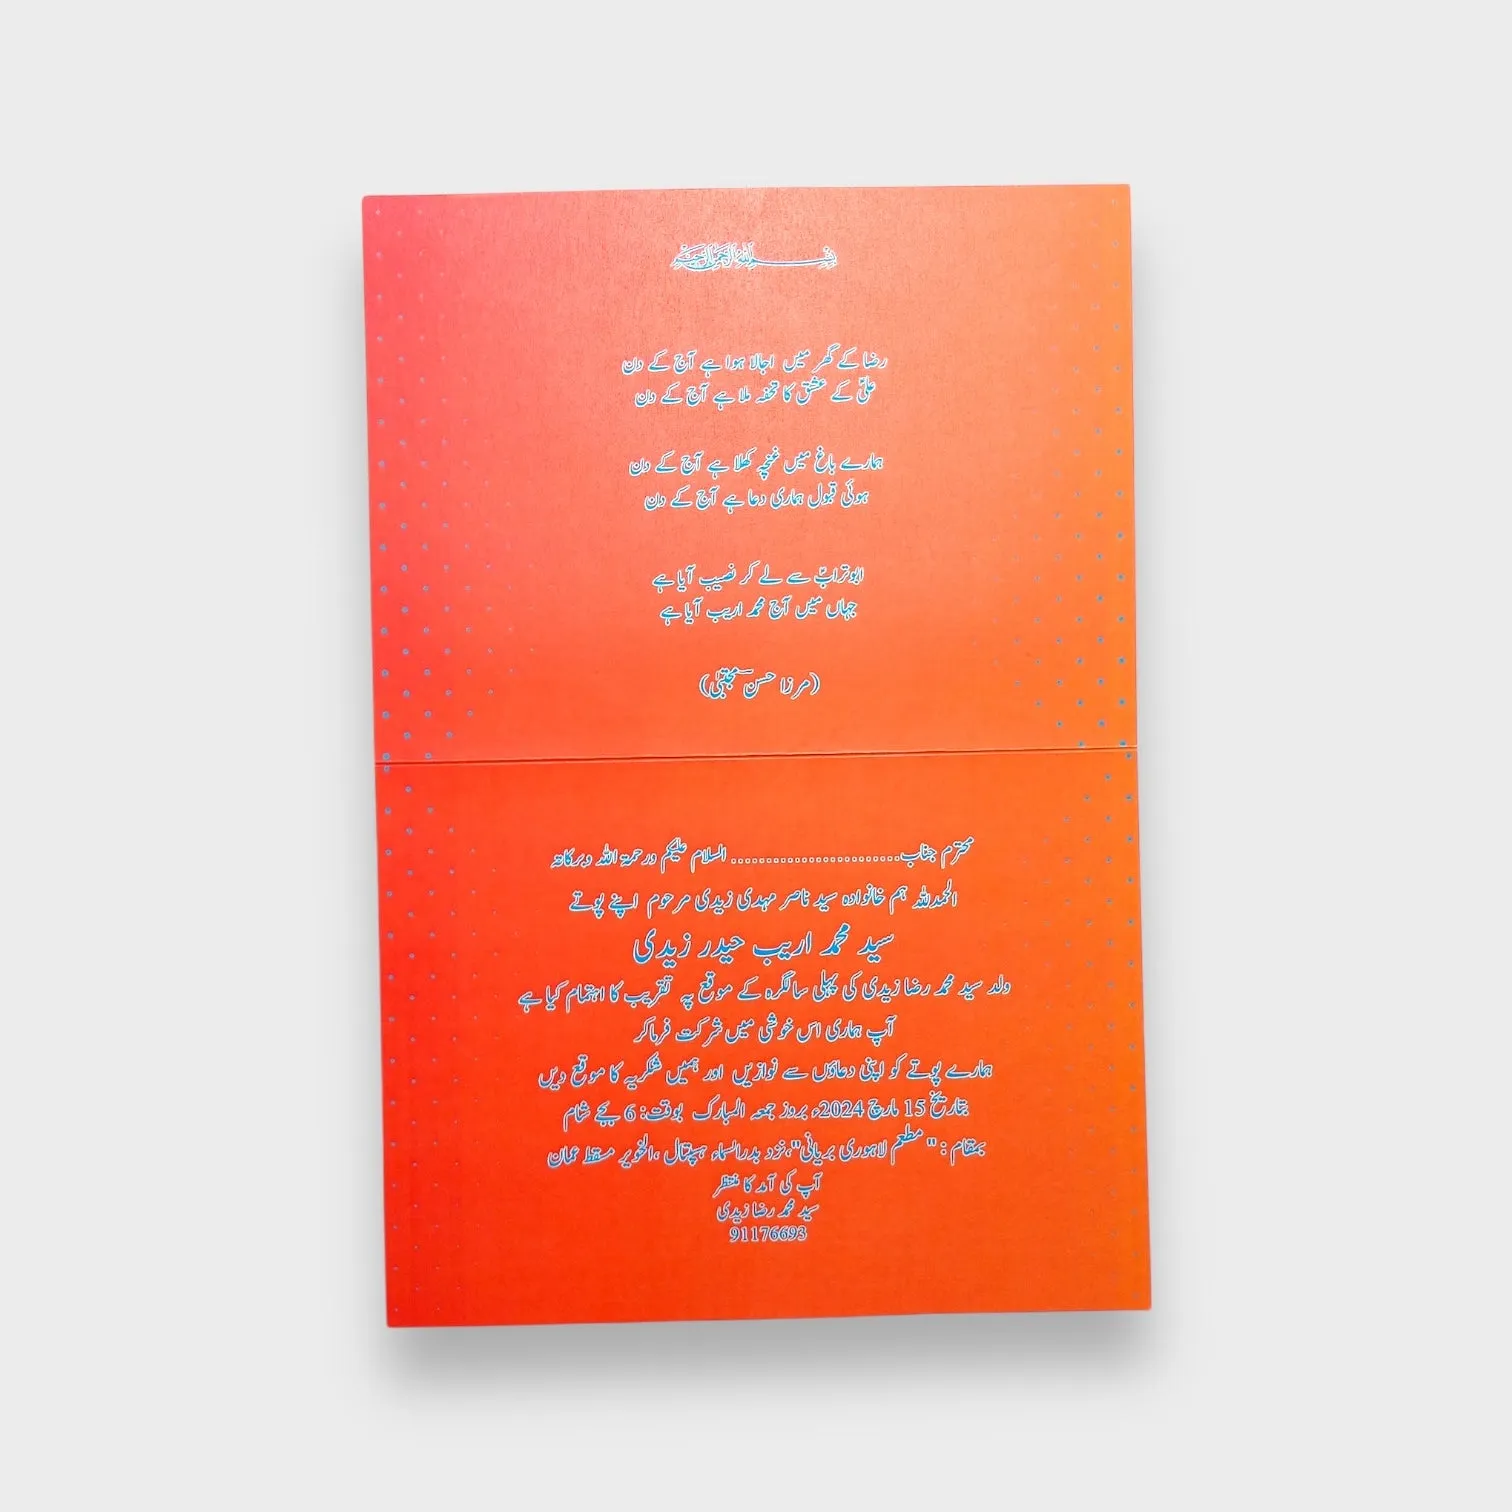 بسم الله الرحمن الرحيم
رضا کے گھر میں اجالا ہوا ہے آج کے دن
علیؑ کے عشق کا تحفہ ملا ہے آج کے دن
ہمارے باغ میں غنچہ کھلا ہے آج کے دن
ہوئی قبول ہماری دعا ہے آج کے دن
ابوترابؑ سے لے کر نصیب آیا ہے
جہاں میں آج محمد اریب آیا ہے
(مرزا حسن مجتبیٰ)
محترم جناب......................... السلام علیکم ورحمۃ اللہ وبرکاتہ
الحمدللہ ہم خانوادہ سید ناصر مہدی زیدی مرحوم اپنے پوتے
سید محمد اریب حیدر زیدی
ولد سید محمد رضا زیدی کی پہلی سالگرہ کے موقع پہ تقریب کا اہتمام کیا ہے
آپ ہماری اس خوشی میں شرکت فرماکر
ہمارے پوتے کو اپنی دعاؤں سے نوازیں اور ہمیں شکریہ کا موقع دیں
بتاریخ 15 مارچ 2024ء بروز جمعہ المبارک بوقت: 6 بجے شام
بمقام : "مطعم لاہوری بریانی"،نزد بدرالسماء ہسپتال ،الخویر مسقط عمان
آپ کی آمد کا منتظر
سید محمد رضا زیدی
91176693